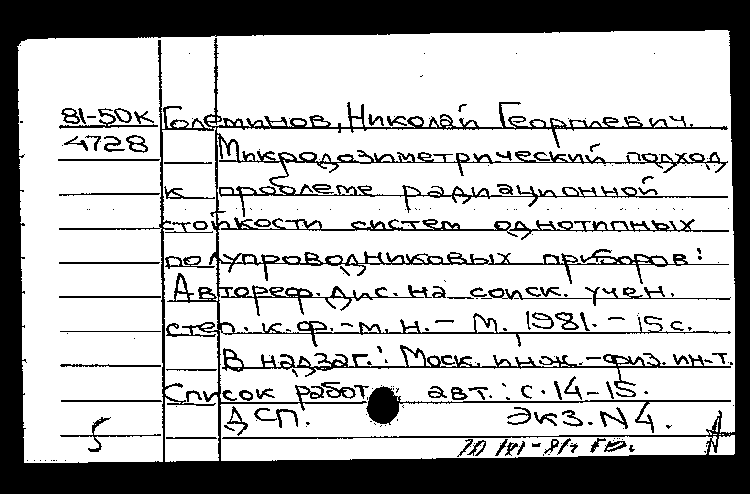 81-50к Големинов, Николай Георгиевич.
4728 Микродозиметрический подход
к проблеме радиационной
стойкости систем однотипных
полупроводниковых приборов:
Автореф. дис. на соиск. учен.
степ. к. ф.-м. н. - М., 1981. - 15 с.
В надзаг.: Моск. инж.-физ. ин-т.
Список работ авт.: с. 14-15.
ДСП. Экз. N 4.
5